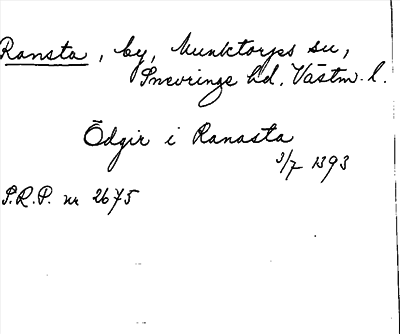 Ransta, by, Munktorps sn,
Snevringe hd, Västm. l.
Ödgir i Ranasta
3/7 1393
S.R.P. nr 2675